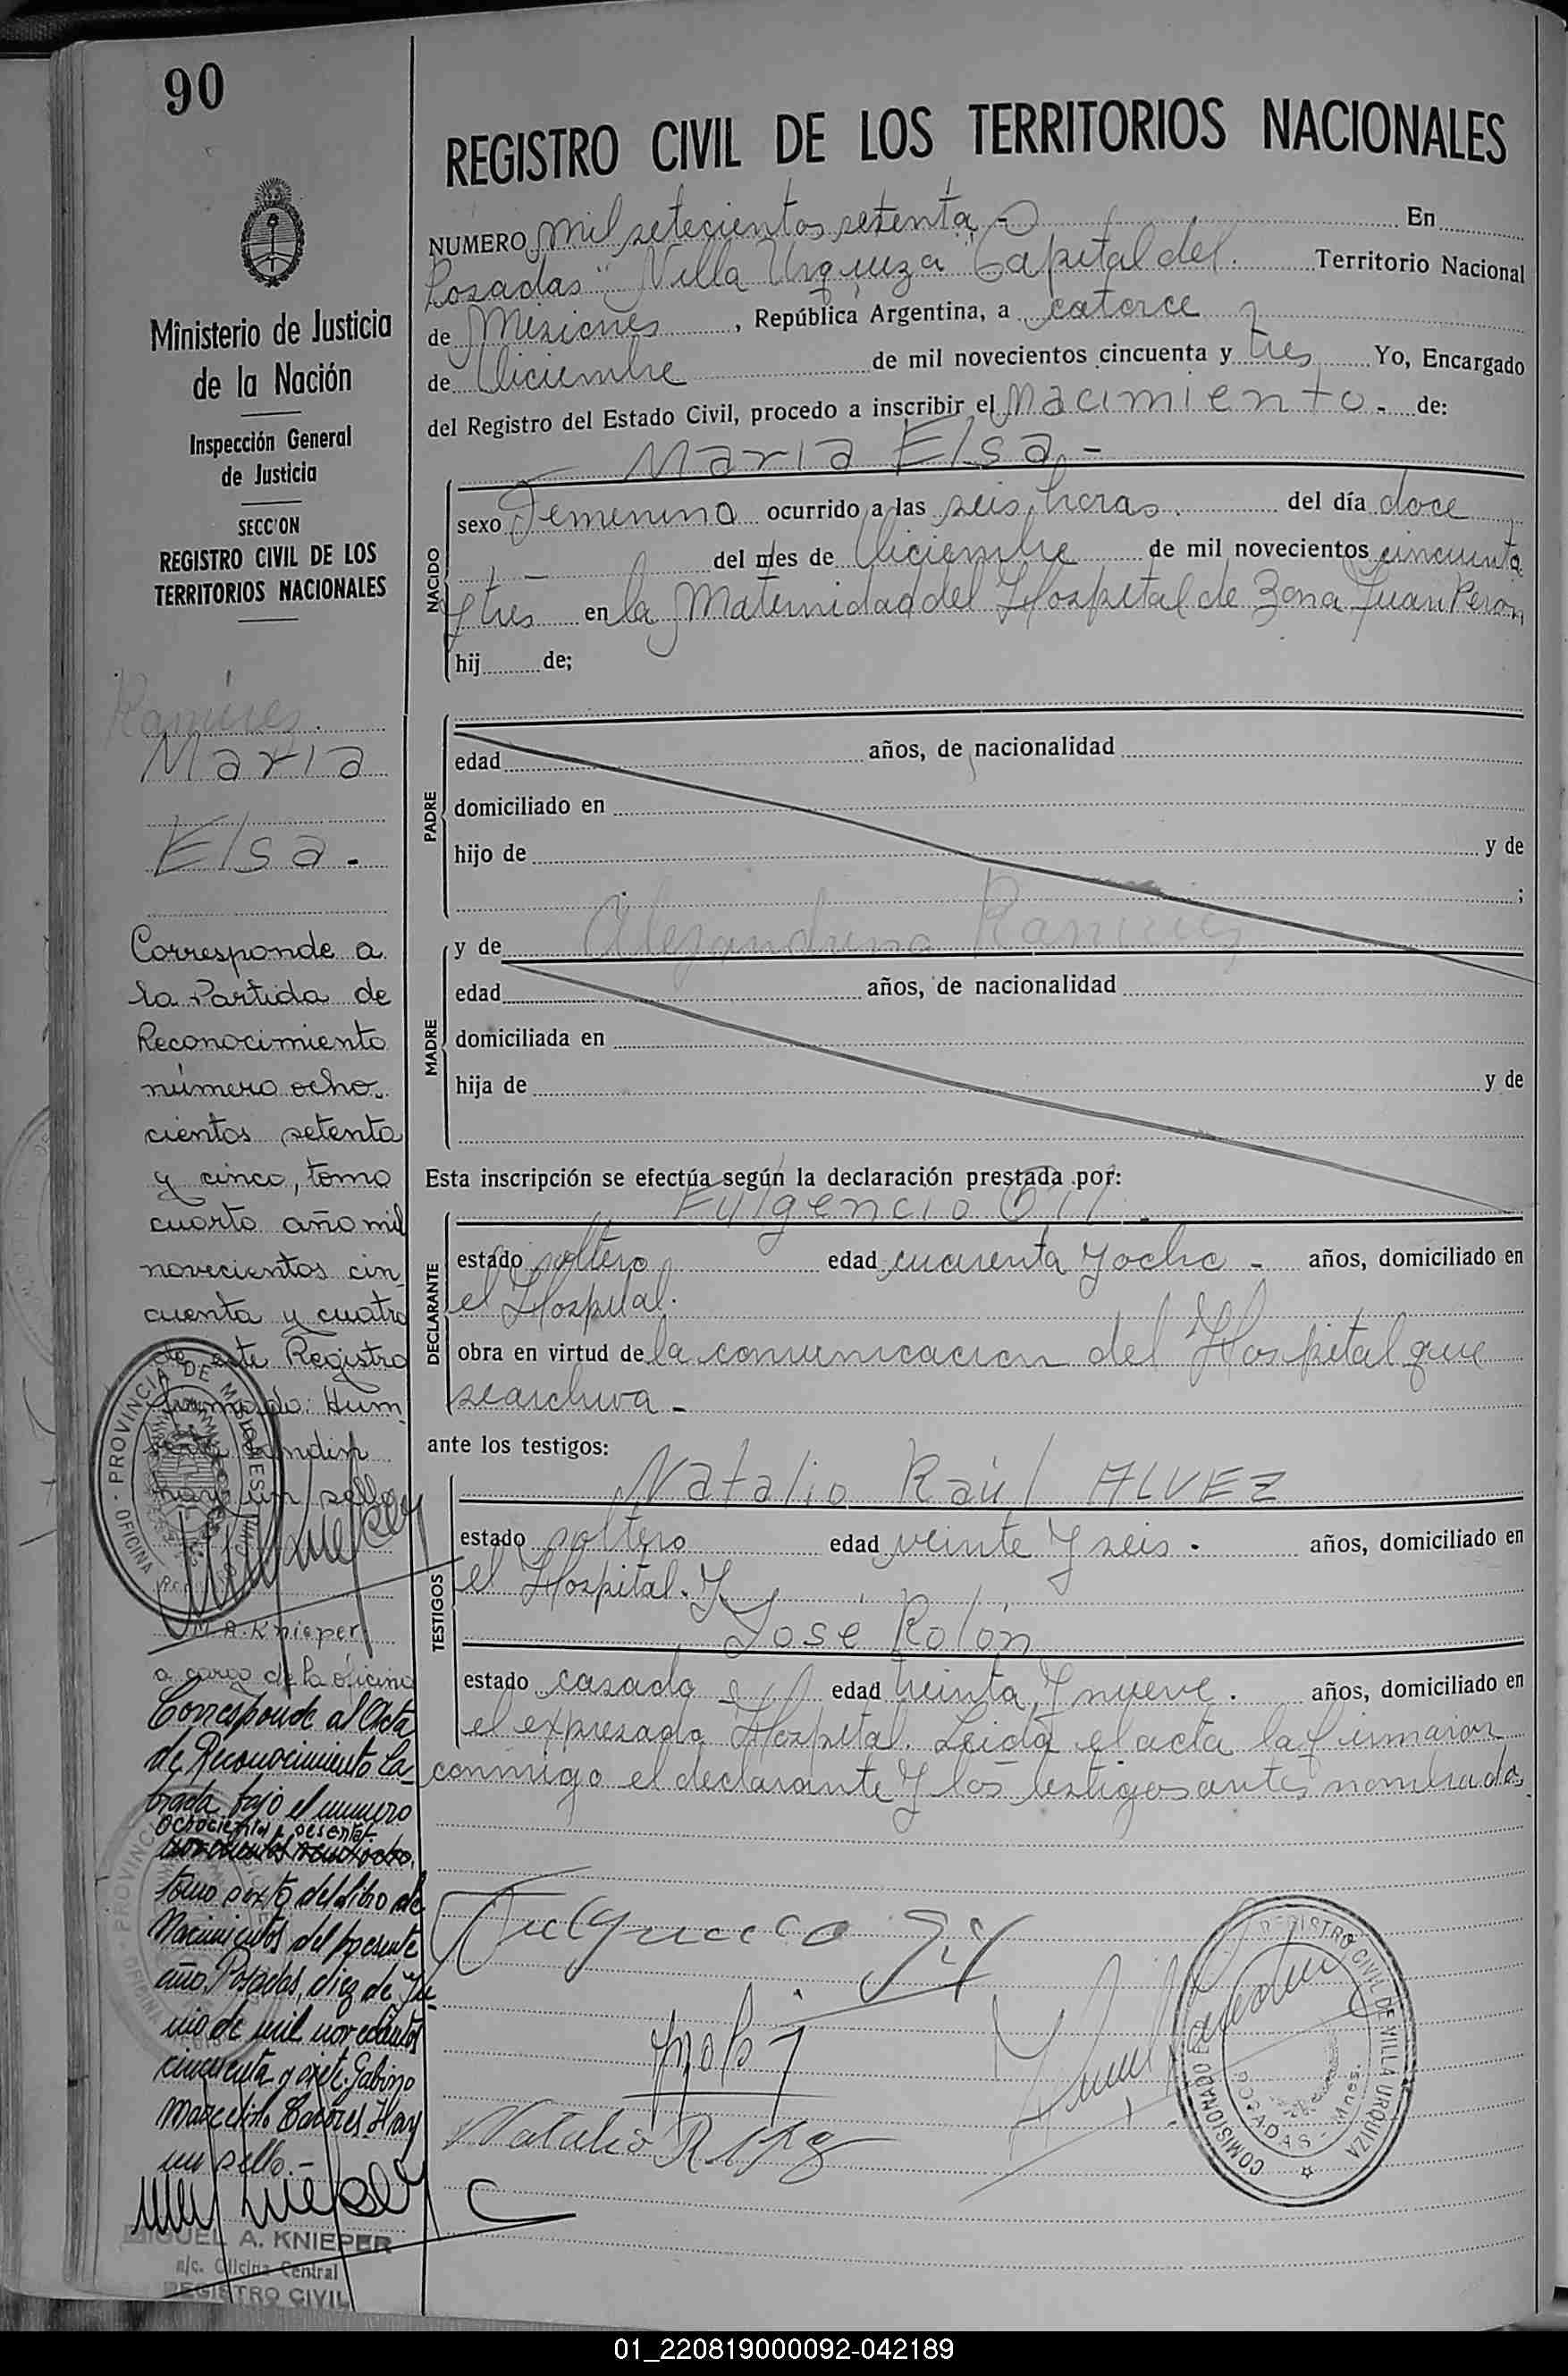 90
Ministerio de Justicia
de la Nación
Inspección General
de Justicia
SECC'ON
REGISTRO CIVIL DE LOS
TERRITORIOS NACIONALES
Ramires.
Maria
Elsa.
Corresponde a
la Partida de
Reconocimiento
número ocho-
cientos setenta
y cinco, tomo
cuarto año mil
novecientos cin
cuenta y cuatro
de este Registro
firmado: Hum-
hay un sello
PROVINCIA DE MISIONES
OFICINA
M. A. Knieper
a cargo de la oficina
Corresponde al Acta
de Reconocimiento la-
brada bajo el numero
ochocientos sesenta
tomo sexto del libro de
Nacimientos del presente
año. Posadas, diez de Ju-
nio de mil novecientos
cincuenta y siete. Gabino
Marcelino Cáceres. Hay
un sello.-
MIGUEL A. KNIEPER
a/c. Oficina Central
REGISTRO CIVIL
REGISTRO CIVIL DE LOS TERRITORIOS NACIONALES
NUMERO mil setecientos setenta.- En
Posadas "Villa Urquiza Capital del. Territorio Nacional
de Misiones, República Argentina, a catorce
de Diciembre de mil novecientos cincuenta y tres Yo, Encargado
del Registro del Estado Civil, procedo a inscribir el Nacimiento.- de:
Maria Elsa.-
NACIDO
sexo Femenino ocurrido a las seis horas. del día doce
del mes de Diciembre de mil novecientos cincuenta
y tres en la Maternidad del Hospital de Zona Juan Peron
hij de;
PADRE
edad años, de nacionalidad
domiciliado en
hijo de y de
;
MADRE
y de Alejandrina Ramires
edad años, de nacionalidad
domiciliada en
hija de y de
Esta inscripción se efectúa según la declaración prestada por:
Fulgencio Gil.
DECLARANTE
estado soltero edad cuarenta y ocho - años, domiciliado en
el Hospital.
obra en virtud de la comunicacion del Hospital que
se archiva -
ante los testigos:
Natalio Raúl ALVEZ
TESTIGOS
estado soltero edad veinte y seis. años, domiciliado en
el Hospital. Y
José Rolón
estado casado edad treinta y nueve. años, domiciliado en
el expresado Hospital. Leida el acta la firmaron
conmigo el declarante y los testigos antes nombrados
Fulgencio Gil
Natalio R
COMISIONADO REGISTRO CIVIL DE VILLA URQUIZA
POSADAS - Mnes.
01_220819000092-042189